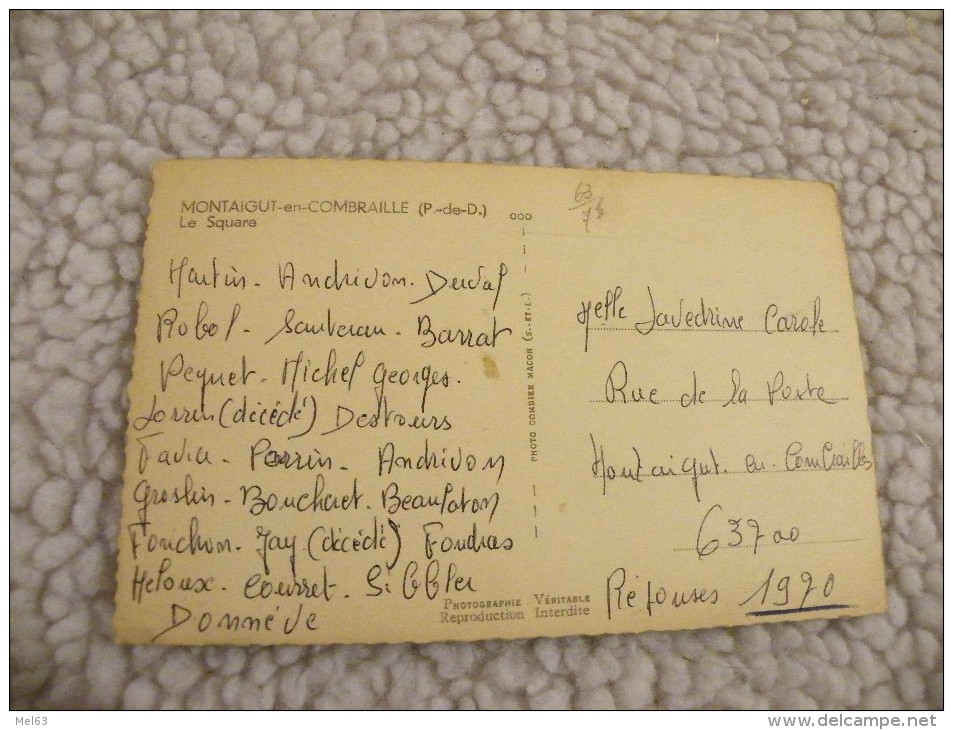 MONTAIGUT-en-COMBRAILLE (P.-de-D.)
Le Square
Martin - Andrivon. Duval
Robol - Sauteran - Barrat
Pequet - Michel Georges.
Lorrin (décédé) Destours
Favier - Perrin - Andrivon
Groslin - Bouchet - Beaulaton
Fonchon - Jay (décédé) Foudras
Heloux - Courret - Si
Donnève
PHOTO COMBIER MACON (S.-ET-L.)
PHOTOGRAPHIE VÉRITABLE
Reproduction Interdite
63
Melle Lavedrine Carole
Rue de la Poste
Montaigut en Combrailles
63700
Réponses 1970
Mel63
http://www.delcampe.net